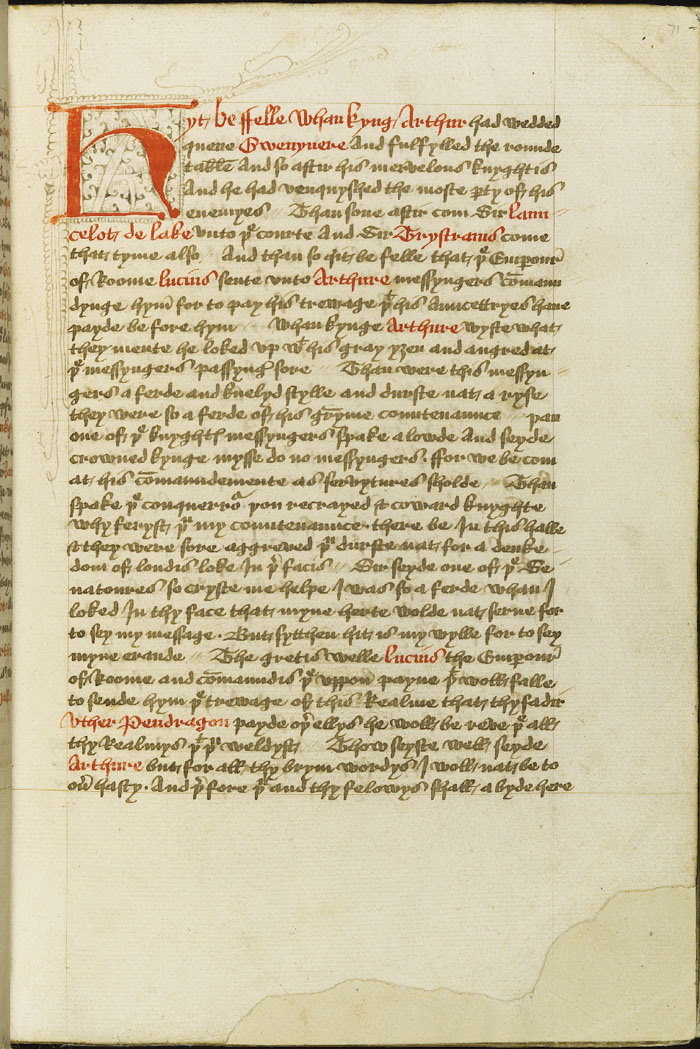 71
Hyt be ffelle whan kyng Arthur had wedded
quene Gwenyvere And fulfylled the rounde
table And so aftir his mervelous knyghtis
And he had venquyshed the moste pty off his
enemyes Than sone aftir com Sir Laun
celot de lake unto þe courte And Sir Trystrams come
that tyme also And than so hit be felle that þe Emperour
off Roome lucius sente unto Arthure messyngers comaun
dynge hym for to pay his trewage þt his Auncettryes haue
payde be fore hym Whan kynge Arthure wyste what
they mente he loked vp wt his gray yzen and angred at
þe messyngers passyng sore Than were this messyn
gers a ferde and knelyd stylle and durste nat a ryse
they were so a ferde off his grymme countenaunce þan
one off þe knyghtes messyngers spake alowde And seyde
crowned kynge mysse do no messyngers . ffor we be com
at his comaundemente as servytures sholde Than
spake þe conquerror þou recrayed & coward knyghte
why feryst þu my countenaunce there be In this halle
& they were sore aggreved þu durste nat for a deuke
dom off londis loke In þer facis Sir seyde one off þe Se
natoures so cryste me helpe I was so a ferde whan I
loked In thy face that myne herte wolde nat serve for
to sey my message . But sytthen hit is my wylle for to sey
myne erande The gretis welle lucius the Emperour
off Roome and comaundis þe vppon payne þt woll falle
to sende hym þe trewage off this Realme that thy fadir
Uther Pendragon payde oþer ellys he woll be reve þe all
thy Realmys þt þu weldyst Thow seyste well seyde
Arthure but for all thy brym wordys I woll nat be to
over hasty . And þerfore þu and thy felowys shall a byde here